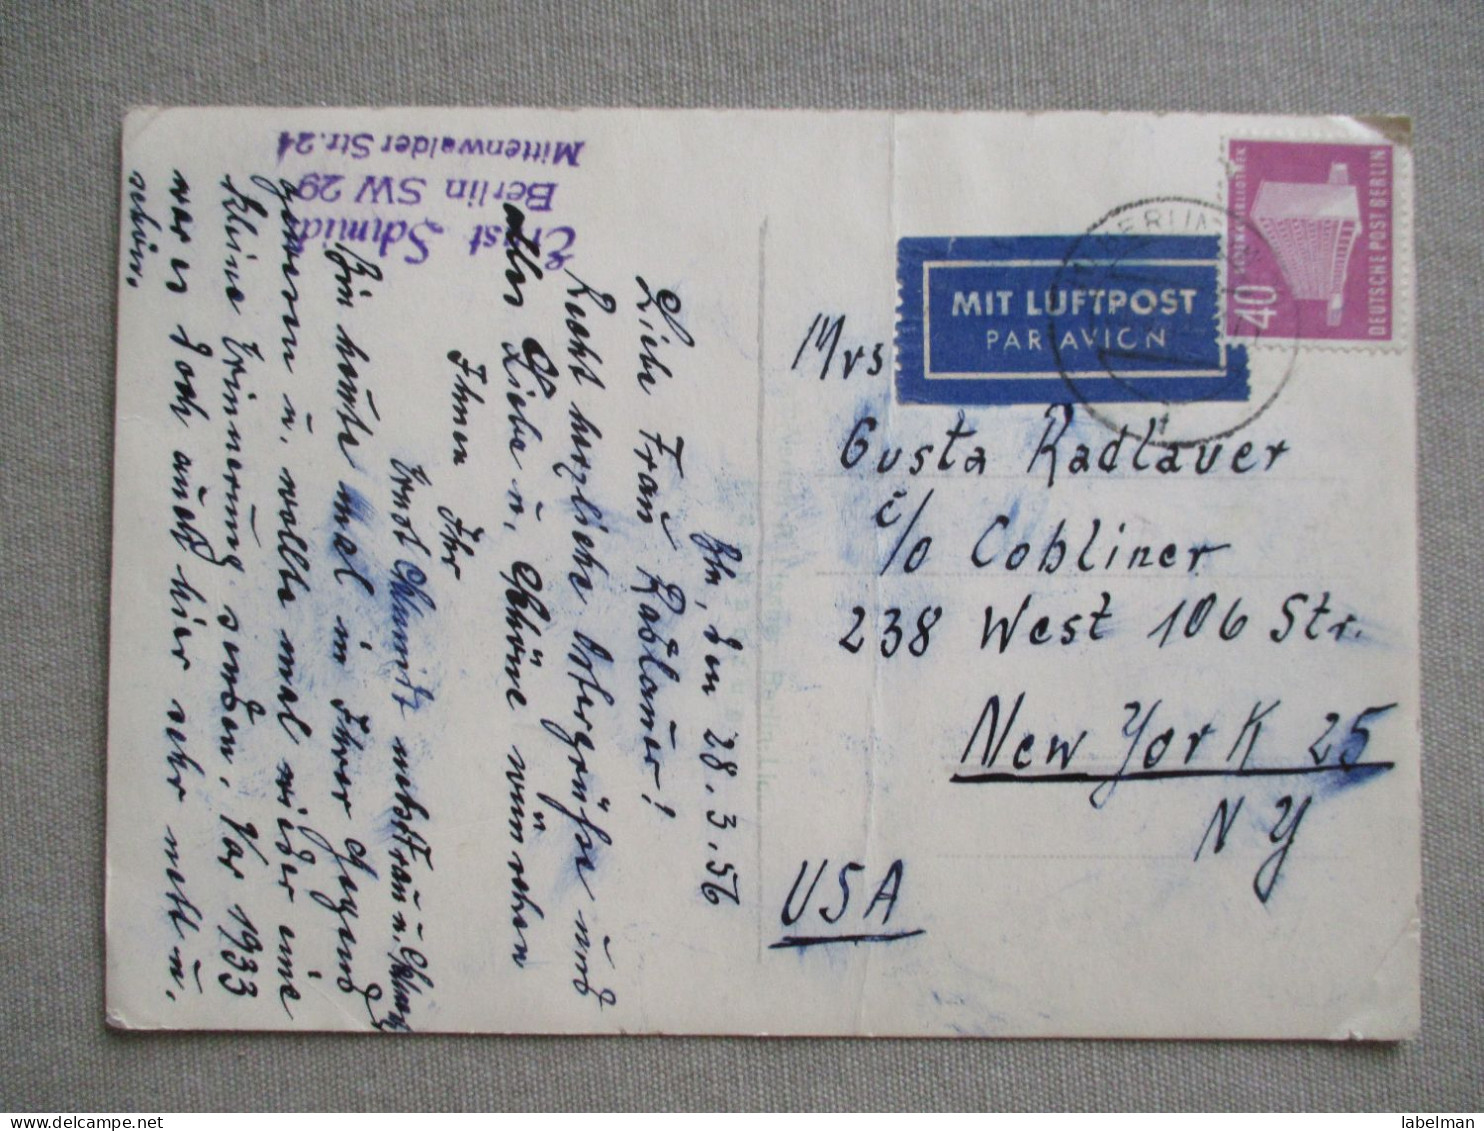 Ernst Schmidt
Berlin SW 29
Mittenwalder Str. 24
Bln, den 28.3.56
Liebe Frau Radlauer!
Recht herzliche Ostergrüße und
alles Liebe u. Schöne wünschen
Ihnen Ihr
Ernst Schmidt nebst Frau u.
Bin heute mal in Ihrer Gegend
gewesen u. wollte mal wieder eine
kleine Erinnerung senden. Vor 1933
war es doch auch hier sehr nett u.
schön.
MIT LUFTPOST
PAR AVION
40
DEUTSCHE POST BERLIN
BERLIN
Mrs
Gusta Radlauer
c/o Cobliner
238 West 106 Str.
New York 25
NY
USA
labelman
www.delcampe.net